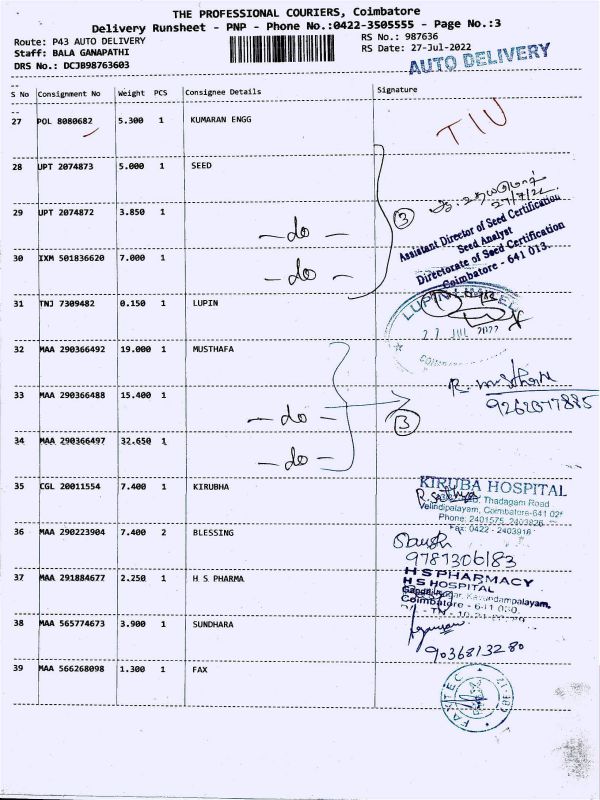 THE PROFESSIONAL COURIERS, Coimbatore
Delivery Runsheet - PNP - Phone No.:0422-3505555 - Page No.:3
Route: P43 AUTO DELIVERY
RS No.: 987636
Staff: BALA GANAPATHI
RS Date: 27-Jul-2022
DRS No.: DCJB98763603
AUTO DELIVERY
S No Consignment No Weight PCS Consignee Details Signature
27 POL 8080682 5.300 1 KUMARAN ENGG
28 UPT 2074873 5.000 1 SEED
27/7/22
3
29 UPT 2074872 3.850 1
- do -
Assistant Director of Seed Certification
Seed Analyst
Directorate of Seed Certification
Coimbatore - 641 013.
30 IXM 501836620 7.000 1
- do -
31 TNJ 7309482 0.150 1 LUPIN
27 JUL 2022
32 MAA 290366492 19.000 1 MUSTHAFA
33 MAA 290366488 15.400 1
- do -
3
34 MAA 290366497 32.650 1
- do -
35 CGL 20011554 7.400 1 KIRUBHA
KIRUBA HOSPITAL
Thadagam Road
Velindipalayam, Coimbatore-641 02
Phone: 2401575, 2403826
Fax: 0422 - 2403916
36 MAA 290223904 7.400 2 BLESSING
9787306183
37 MAA 291884677 2.250 1 H S PHARMA
H S PHARMACY
H S HOSPITAL
Coimbatore - 641 030.
38 MAA 565774673 3.900 1 SUNDHARA
9036813280
39 MAA 566268098 1.300 1 FAX